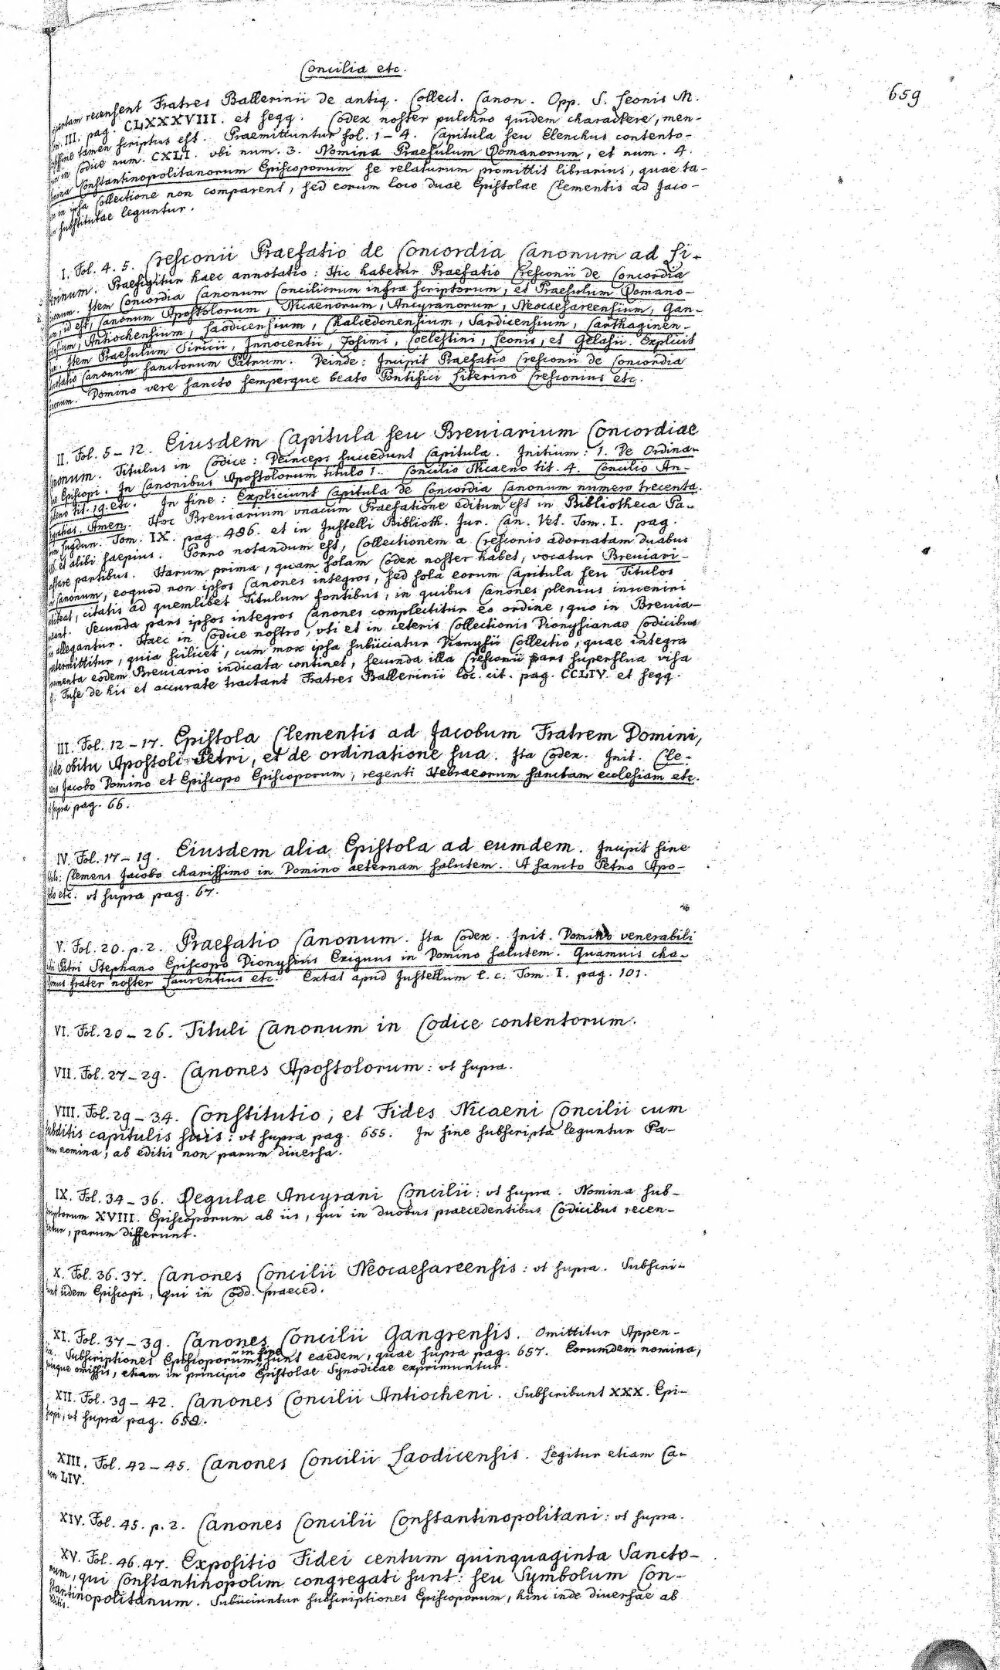 Concilia etc.
659
recensent Fratres Ballerinii de antiq. Collect. Canon. Opp. S. Leonis M.
III. pag. CLXXXVIII. et seqq. Codex noster pulchro quidem charactere, men-
tamen scriptus est. Praemittuntur fol. 1-4. Capitula seu Elenchus contento-
in Codice num. CXLI. vbi num. 3. Nomina Praesulum Romanorum, et num. 4.
Constantinopolitanorum Episcoporum se relaturum promittit librarius, quae ta-
in ipsa Collectione non comparent, sed eorum loco duae Epistolae Clementis ad Jaco-
substitutae leguntur.
I. Fol. 4. 5. Cresconii Praefatio de Concordia Canonum ad Li-
berinum. Praefigitur haec annotatio: Hic habetur Praefatio Cresconii de Concordia
Item Concordia Canonum Conciliorum infra scriptorum, et Praesulum Romano-
id est, Canonum Apostolorum, Nicaenorum, Ancyranorum, Neocaesareensium, Gan-
Antiochensium, Laodicensium, Chalcedonensium, Sardicensium, Carthaginen-
Item Praesulum Siricii, Innocentii, Zosimi, Coelestini, Leonis, et Gelasii. Explicit
Canonum sanctorum Patrum. Deinde: Incipit Praefatio Cresconii de Concordia
Domino vere sancto semperque beato Pontifici Liberino Cresconius etc.
II. Fol. 5-12. Eiusdem Capitula seu Breuiarium Concordiae
Titulus in Codice: Deinceps succedunt Capitula. Initium: 1. De Ordina-
Episcopi. In Canonibus Apostolorum titulo 1. Concilio Nicaeno tit. 4. Concilio An-
tit. 19. etc. In fine: Expliciunt Capitula de Concordia Canonum numero trecenta.
Amen. Hoc Breuiarium vnacum Praefatione editum est in Bibliotheca Pa-
Lugdun. Tom. IX. pag. 496. et in Justelli Biblioth. Jur. Can. Vet. Tom. I. pag.
et alibi saepius. Porro notandum est, Collectionem a Cresconio adornatam duabus
partibus. Harum prima, quam solam Codex noster habet, vocatur Breuiari-
Canonum, eoquod non ipsos Canones integros, sed sola eorum Capitula seu Titulos
citatis ad quemlibet Titulum fontibus, in quibus Canones plenius inueniri
Secunda pars ipsos integros Canones complectitur eo ordine, quo in Breuia-
allegantur. Haec in Codice nostro, vti et in ceteris Collectionis Dionysianae Codicibus
intermittitur, quia scilicet, cum mox ipsa subiiciatur Dionysii Collectio, quae integra
eodem Breuiario indicata continet, secunda illa Cresconii pars superflua visa
Fuse de his et accurate tractant Fratres Ballerinii loc. cit. pag. CCLIV. et seqq.
III. Fol. 12-17. Epistola Clementis ad Jacobum Fratrem Domini,
de obitu Apostoli Petri, et de ordinatione sua. Ita Codex. Init. Cle-
mens Jacobo Domino et Episcopo Episcoporum, regenti Hebraeorum sanctam ecclesiam etc.
supra pag. 66.
IV. Fol. 17-19. Eiusdem alia Epistola ad eumdem. Incipit sine
Clemens Jacobo charissimo in Domino aeternam salutem. A sancto Petro Apo-
etc. vt supra pag. 67.
V. Fol. 20. p. 2. Praefatio Canonum. Ita Codex. Init. Domino venerabili
Patri Stephano Episcopo Dionysius Exiguus in Domino salutem. Quamuis cha-
frater noster Laurentius etc. Extat apud Justellum l. c. Tom. I. pag. 101.
VI. Fol. 20-26. Tituli Canonum in Codice contentorum.
VII. Fol. 27-29. Canones Apostolorum: vt supra.
VIII. Fol. 29-34. Constitutio, et Fides Nicaeni Concilii cum
subditis capitulis suis: vt supra pag. 655. In fine subscripta leguntur Pa-
nomina, ab editis non parum diuersa.
IX. Fol. 34-36. Regulae Ancyrani Concilii: vt supra. Nomina sub-
scriptorum XVIII. Episcoporum ab iis, qui in duobus praecedentibus Codicibus recen-
parum differunt.
X. Fol. 36. 37. Canones Concilii Neocaesareensis: vt supra. Subscri-
iidem Episcopi, qui in Codd. praeced.
XI. Fol. 37-39. Canones Concilii Gangrensis. Omittitur Appen-
Subscriptiones Episcoporum in fine sunt eaedem, quae supra pag. 657. Eorumdem nomina,
omissis, etiam in principio Epistolae Synodicae exprimuntur.
XII. Fol. 39-42. Canones Concilii Antiocheni. Subscribunt XXX. Epi-
scopi, vt supra pag. 658.
XIII. Fol. 42-45. Canones Concilii Laodicensis. Legitur etiam Ca-
non LIV.
XIV. Fol. 45. p. 2. Canones Concilii Constantinopolitani: vt supra.
XV. Fol. 46. 47. Expositio Fidei centum quinquaginta Sancto-
rum, qui Constantinopolim congregati sunt: seu Symbolum Con-
stantinopolitanum. Subiiciuntur subscriptiones Episcoporum, hinc inde diuersae ab